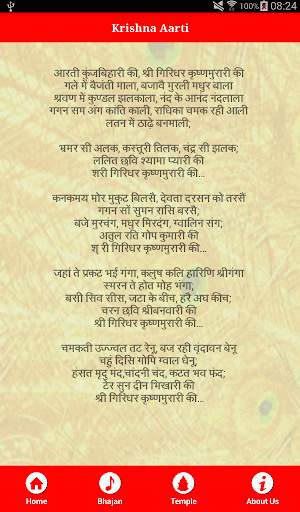 100% 08:24
Krishna Aarti
आरती कुंजबिहारी की, श्री गिरिधर कृष्णमुरारी की
गले में बैजंती माला, बजावै मुरली मधुर बाला
श्रवण में कुण्डल झलकाला, नंद के आनंद नंदलाला
गगन सम अंग कांति काली, राधिका चमक रही आली
लतन में ठाढ़े बनमाली;
भ्रमर सी अलक, कस्तूरी तिलक, चंद्र सी झलक;
ललित छवि श्यामा प्यारी की
शरी गिरिधर कृष्णमुरारी की...
कनकमय मोर मुकुट बिलसै, देवता दरसन को तरसैं
गगन सों सुमन रासि बरसै;
बजे मुरचंग, मधुर मिरदंग, ग्वालिन संग;
अतुल रति गोप कुमारी की
श् री गिरिधर कृष्णमुरारी की...
जहां ते प्रकट भई गंगा, कलुष कलि हारिणि श्रीगंगा
स्मरन ते होत मोह भंगा;
बसी सिव सीस, जटा के बीच, हरै अघ कीच;
चरन छवि श्रीबनवारी की
श्री गिरिधर कृष्णमुरारी की...
चमकती उज्ज्वल तट रेनु, बज रही वृंदावन बेनू
चहुं दिसि गोपि ग्वाल धेनू;
हसत मृदु मंद,चांदनी चंद, कटत भव फंद;
टेर सुन दीन भिखारी की
श्री गिरिधर कृष्णमुरारी की...
Home Bhajan Temple About Us